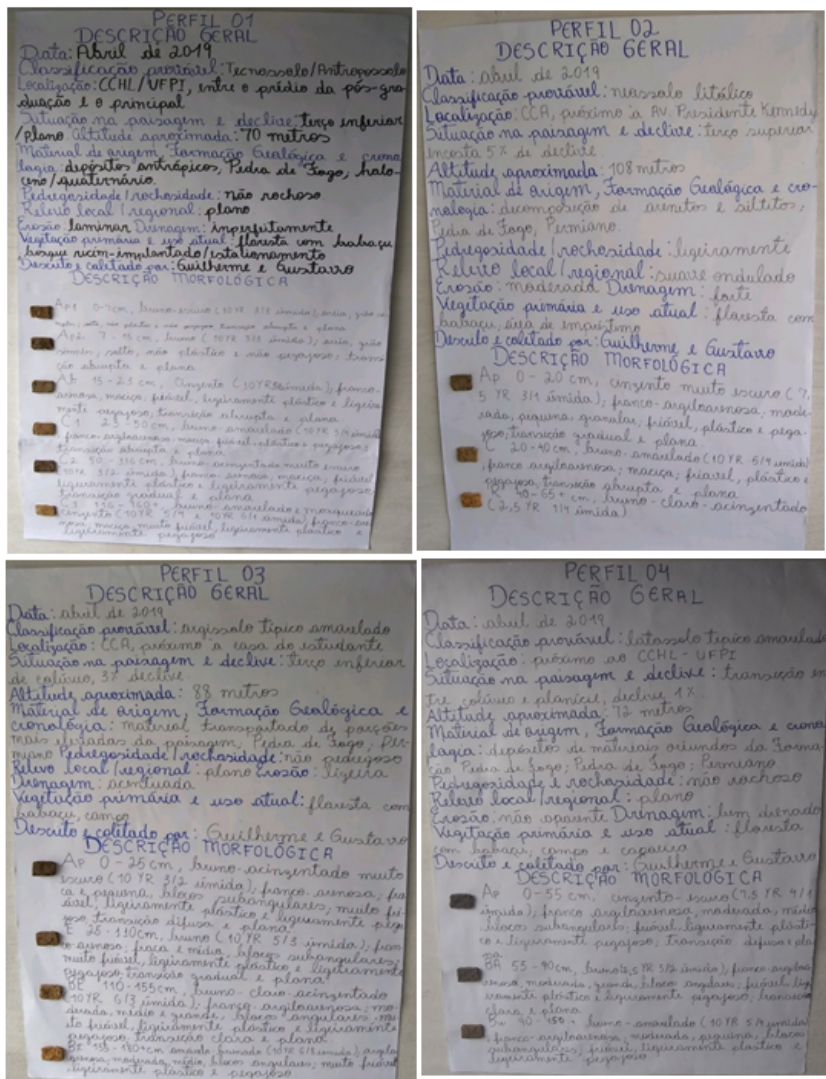 PERFIL 01
DESCRIÇÃO GERAL
Data: Abril de 2019
Classificação provável: Tecnossolo/Antropossolo
Localização: CCHL/UFPI, entre o prédio da pós-gra-
duação e o principal
Situação na paisagem e declive: terço inferior
/plano Altitude aproximada: 70 metros
Material de origem, Formação Geológica e crono
logia: depósitos antrópicos, Pedra de Fogo, holo-
ceno/quaternário.
Pedregosidade/rochosidade: não rochoso
Relevo local/regional: plano
Erosão: laminar Drenagem: imperfeitamente
Vegetação primária e uso atual: floresta com babaçu
bosque recém-implantado/estacionamento
Descrito e coletado por: Guilherme e Gustavo
DESCRIÇÃO MORFOLÓGICA
Ap1 0-7cm, bruno-escuro (10 YR 3/3 úmida), areia, grão
simples, solto, não plástico e não pegajoso transição abrupta e plana
Ap2 7-15 cm, bruno (10 YR 5/3 úmida); areia, grão
simples, solto, não plástico e não pegajoso; transi
ção abrupta e plana
Ab 15-23 cm, cinzento (10YR úmida); franco-
arenosa, maciça, friável, ligeiramente plástico e ligeira
mente pegajoso, transição abrupta e plana
C1 23-50 cm, bruno-amarelado (10YR 5/4 úmida)
franco-argiloarenosa; maciça; friável, plástico e pegajoso;
transição abrupta e plana
C2 50-116 cm, bruno-acinzentado muito escuro
(10YR 3/2 úmida); franco-arenosa, maciça, friável
ligeiramente plástico e ligeiramente pegajoso,
transição gradual e plana
C3 116-160+, bruno-amarelado e mosqueado
cinzento (10YR 5/4 e 10YR 6/1 úmida) franco-are
nosa, maciça, muito friável, ligeiramente plástico e
ligeiramente pegajoso
PERFIL 02
DESCRIÇÃO GERAL
Data: abril de 2019
Classificação provável: neossolo litólico
Localização: CCA, próximo à AV. Presidente Kennedy
Situação na paisagem e declive: terço superior
encosta 5% de declive
Altitude aproximada: 108 metros
Material de origem, Formação Geológica e cro-
nologia: decomposição de arenitos e siltitos;
Pedra de Fogo, Permiano.
Pedregosidade/rochosidade: ligeiramente
Relevo local/regional: suave ondulado
Erosão: moderada Drenagem: forte
Vegetação primária e uso atual: floresta com
babaçu, área de empréstimo
Descrito e coletado por: Guilherme e Gustavo
DESCRIÇÃO MORFOLÓGICA
Ap 0-20 cm, cinzento muito escuro (7,
5 YR 3/1 úmida); franco-argiloarenosa; mode-
rada, pequena, granular; friável, plástico e pega-
joso; transição gradual e plana
C 20-40 cm, bruno-amarelado (10 YR 5/4 úmida)
franco argiloarenosa; maciça; friável, plástico e
pegajoso, transição abrupta e plana
R 40-65+ cm, bruno-claro-acinzentado
(2,5 YR úmida)
PERFIL 03
DESCRIÇÃO GERAL
Data: abril de 2019
Classificação provável: argissolo típico amarelado
Localização: CCA, próximo a casa do estudante
Situação na paisagem e declive: terço inferior
de colúvio, 3% declive
Altitude aproximada: 88 metros
Material de origem, Formação Geológica e
cronologia: material transportado de porções
mais elevadas da paisagem, Pedra de Fogo; Per
miano Pedregosidade/rochosidade: não pedregoso
Relevo local/regional: plano Erosão: ligeira
Drenagem: acentuada
Vegetação primária e uso atual: floresta com
babaçu, campo
Descrito e coletado por: Guilherme e Gustavo
DESCRIÇÃO MORFOLÓGICA
Ap 0-25 cm, bruno-acinzentado muito
escuro (10 YR 3/2 úmida); franco-arenosa; fra
ca e pequena, blocos subangulares; muito fri-
ável, ligeiramente plástico e ligeiramente pega
joso, transição difusa e plana
E 25-110cm, bruno (10 YR 5/3 úmida); fran
co-arenosa; fraca e média, blocos subangulares;
muito friável, ligeiramente plástico e ligeiramente
pegajoso transição gradual e plana
BE 110-155cm, bruno-claro-acinzentado
(10YR 6/3 úmida); franco-argiloarenosa; mo-
derada, médio e grande, blocos angulares; mui
to friável, ligeiramente plástico e ligeiramente
pegajoso, transição clara e plana
155-180+cm amarelo-brunado (10YR 6/8 úmida); argilo
arenosa, moderada, média, blocos angulares; muito friável
ligeiramente plástico e pegajoso
PERFIL 04
DESCRIÇÃO GERAL
Data: abril de 2019
Classificação provável: latossolo típico amarelado
Localização: próximo ao CCHL-UFPI
Situação na paisagem e declive: transição en
tre colúvio e planície, declive 1%
Altitude aproximada: 72 metros
Material de origem, Formação Geológica e crono
logia: depósitos de materiais oriundos da Forma-
ção Pedra de fogo; Pedra de Fogo; Permiano
Pedregosidade e rochosidade: não rochoso
Relevo local/regional: plano
Erosão: não aparente Drenagem: bem drenado
Vegetação primária e uso atual: floresta
com babaçu, campo e capoeira
Descrito e coletado por: Guilherme e Gustavo
DESCRIÇÃO MORFOLÓGICA
Ap 0-55 cm, cinzento-escuro (7,5 YR 4/1
úmida), franco argiloarenosa, moderada, média
blocos subangulares; friável, ligeiramente plásti-
co e ligeiramente pegajoso; transição difusa e pla
na
BA 55-90cm, bruno (7,5 YR 5/2 úmida), franco-argiloa
renosa, moderada, grande, blocos angulares; friável, lig
eiramente plástico e ligeiramente pegajoso, transição
clara e plana
Bw 90-150+, bruno-amarelado (10 YR 5/4 úmida)
franco-argiloarenosa; moderada, pequena, blocos
subangulares; friável, ligeiramente plástico e
ligeiramente pegajoso